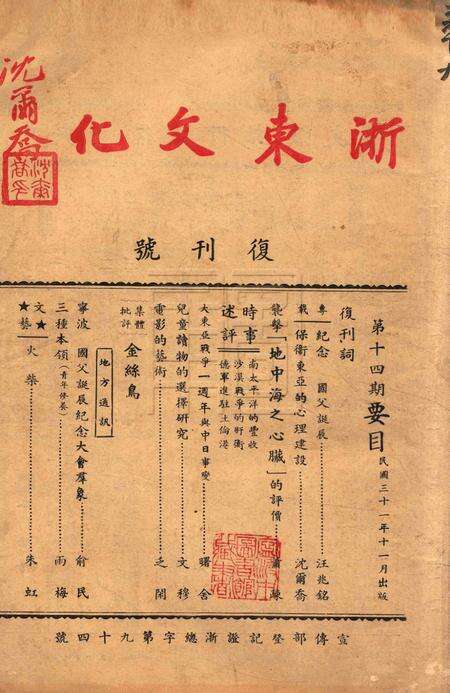 浙東文化
沈爾喬
復刊號
第十四期要目
民國三十一年十一月出版
復刊詞
專載
紀念 國父誕辰……汪兆銘
保衛東亞的心理建設……沈爾喬
襲擊「地中海之心臟」的評價
時事述評
南太平洋的豐收
沙漠戰爭的盱衡
德軍進駐土倫港
大東亞戰爭一週年與中日事變……曙舍
兒童讀物的選擇研究……文穆
電影的藝術……之閑
集體批評
金絲鳥
地方通訊
寧波 國父誕辰紀念大會群象……俞民
三種本領(青年修養)……雨梅
★文藝★
火柴……朱虹
宣傳部登記證浙總字第九十四號